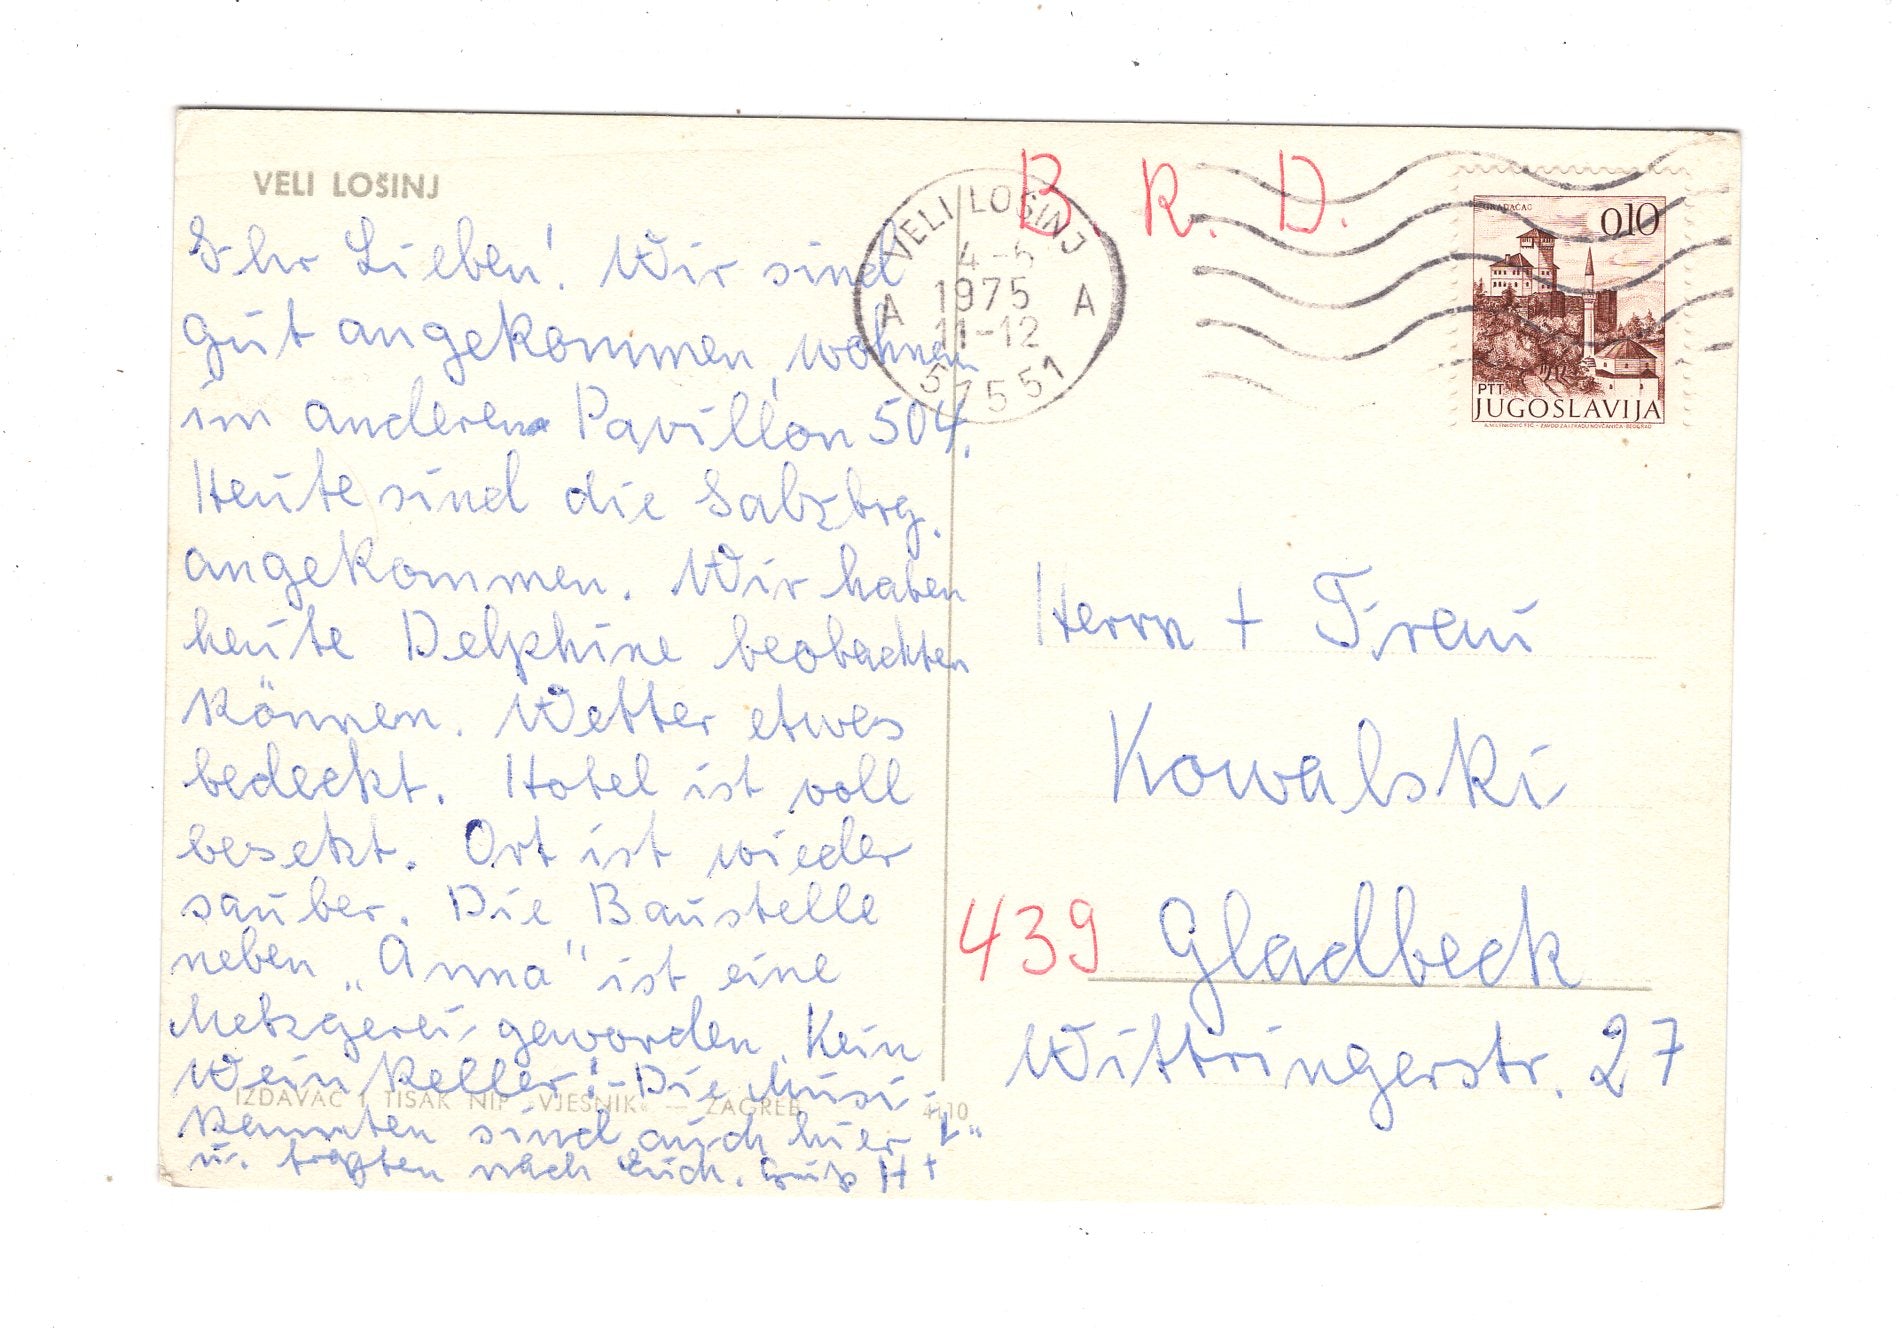 VELI LOŠINJ
Ihr Lieben! Wir sind
gut angekommen, wohnen
im anderen Pavillon 504.
Heute sind die Salzbrg.
angekommen. Wir haben
heute Delphine beobachten
können. Wetter etwas
bedeckt. Hotel ist voll
besetzt. Ort ist wieder
sauber. Die Baustelle
neben „Anna" ist eine
Metzgerei geworden. Kein
Weinkeller! Die Musi-
kannten sind auch hier
u. fragten nach Euch. Gruß H +
IZDAVAČ I TISAK NIP »VJESNIK« — ZAGREB
4110
VELI LOŠINJ
4-5
1975
11-12
A A
51551
B. R. D.
GRADAČAC
0,10
PTT
JUGOSLAVIJA
Herrn + Frau
Kowalski
439 Gladbeck
Wittringerstr. 27